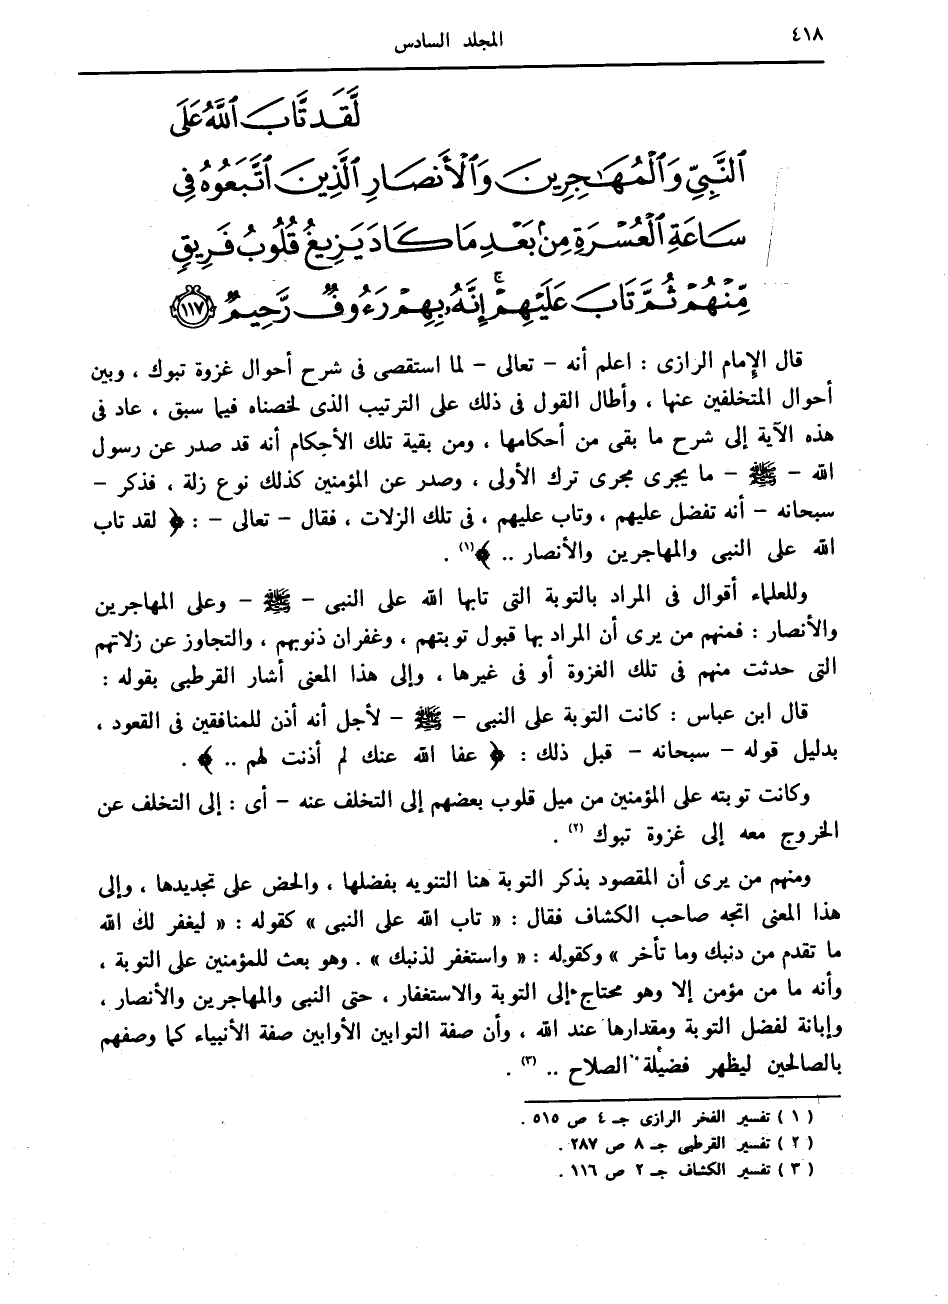 ٤١٨
المجلد السادس
لَّقَد تَّابَ ٱللَّهُ عَلَى
ٱلنَّبِيِّ وَٱلْمُهَٰجِرِينَ وَٱلْأَنصَارِ ٱلَّذِينَ ٱتَّبَعُوهُ فِى
سَاعَةِ ٱلْعُسْرَةِ مِنۢ بَعْدِ مَا كَادَ يَزِيغُ قُلُوبُ فَرِيقٍ
مِّنْهُمْ ثُمَّ تَابَ عَلَيْهِمْ ۚ إِنَّهُۥ بِهِمْ رَءُوفٌ رَّحِيمٌ ١١٧
قال الإمام الرازى : اعلم أنه – تعالى – لما استقصى فى شرح أحوال غزوة تبوك ، وبين
أحوال المتخلفين عنها ، وأطال القول فى ذلك على الترتيب الذى لخصناه فيما سبق ، عاد فى
هذه الآية إلى شرح ما بقى من أحكامها ، ومن بقية تلك الأحكام أنه قد صدر عن رسول
الله – ﷺ – ما يجرى مجرى ترك الأولى ، وصدر عن المؤمنين كذلك نوع زلة ، فذكر –
سبحانه – أنه تفضل عليهم ، وتاب عليهم ، فى تلك الزلات ، فقال – تعالى – : ﴿ لقد تاب
الله على النبى والمهاجرين والأنصار .. ﴾(١) .
وللعلماء أقوال فى المراد بالتوبة التى تابها الله على النبى – ﷺ – وعلى المهاجرين
والأنصار : فمنهم من يرى أن المراد بها قبول توبتهم ، وغفران ذنوبهم ، والتجاوز عن زلاتهم
التى حدثت منهم فى تلك الغزوة أو فى غيرها ، وإلى هذا المعنى أشار القرطبى بقوله :
قال ابن عباس : كانت التوبة على النبى – ﷺ – لأجل أنه أذن للمنافقين فى القعود ،
بدليل قوله – سبحانه – قبل ذلك : ﴿ عفا الله عنك لم أذنت لهم .. ﴾ .
وكانت توبته على المؤمنين من ميل قلوب بعضهم إلى التخلف عنه – أى : إلى التخلف عن
الخروج معه إلى غزوة تبوك (٢) .
ومنهم من يرى أن المقصود بذكر التوبة هنا التنويه بفضلها ، والحض على تجديدها ، وإلى
هذا المعنى اتجه صاحب الكشاف فقال : « تاب الله على النبى » كقوله : « ليغفر لك الله
ما تقدم من دنبك وما تأخر » وكقوله : « واستغفر لذنبك » . وهو بعث للمؤمنين على التوبة ،
وأنه ما من مؤمن إلا وهو محتاج إلى التوبة والاستغفار ، حتى النبى والمهاجرين والأنصار ،
وإبانة لفضل التوبة ومقدارها عند الله ، وأن صفة التوابين الأوابين صفة الأنبياء كما وصفهم
بالصالحين ليظهر فضيلة الصلاح .. (٣) .
( ١ ) تفسير الفخر الرازى جـ ٤ ص ٥١٥ .
( ٢ ) تفسير القرطبى جـ ٨ ص ٢٨٧ .
( ٣ ) تفسير الكشاف جـ ٢ ص ١١٦ .